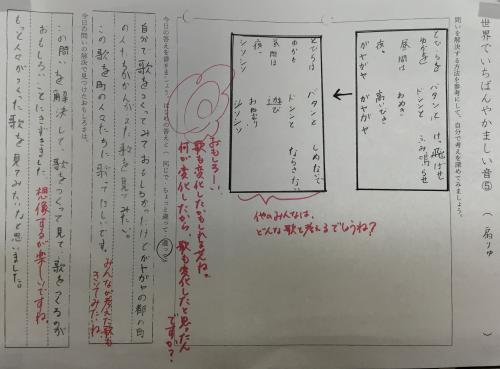 世界でいちばんやかましい音⑤
問いを解決する方法を参考にして、自分で考えを深めてみましょう。
とびらを バタンと け飛ばせ
ゆかを ドンンと ふみ鳴らせ
昼間は わめき
夜は 高いびき
ガヤガヤ ガヤガヤ
とびらは バタンと しめないで
ゆかを ドンンと ならさない
昼間は 遊び
夜は おねむり
シンシン シンシン
他のみんなは、
どんな歌を考えるでしょうね？
今日の答えを書きましょう。
おもしろーい
歌も変化したかもしれませんね。
何が変化したから、歌も変化したと思ったん
ですか？
自分で歌をつくってみておもしろかったけどガヤガヤの都の町
の人たちがかんがえた歌を見てみたい。
この歌を町の人々たちに歌ってほしいです。
みんなが考えた歌も
きいてみたいね
今日の問いの解決で見つけたおもしろさは、
この問いを解決して、歌をつくって見て歌をつくるのが
おもしろいことにきずきました。
想像するが楽しいですね。
もっと人々がつくった歌を見てみたいなと思いました。